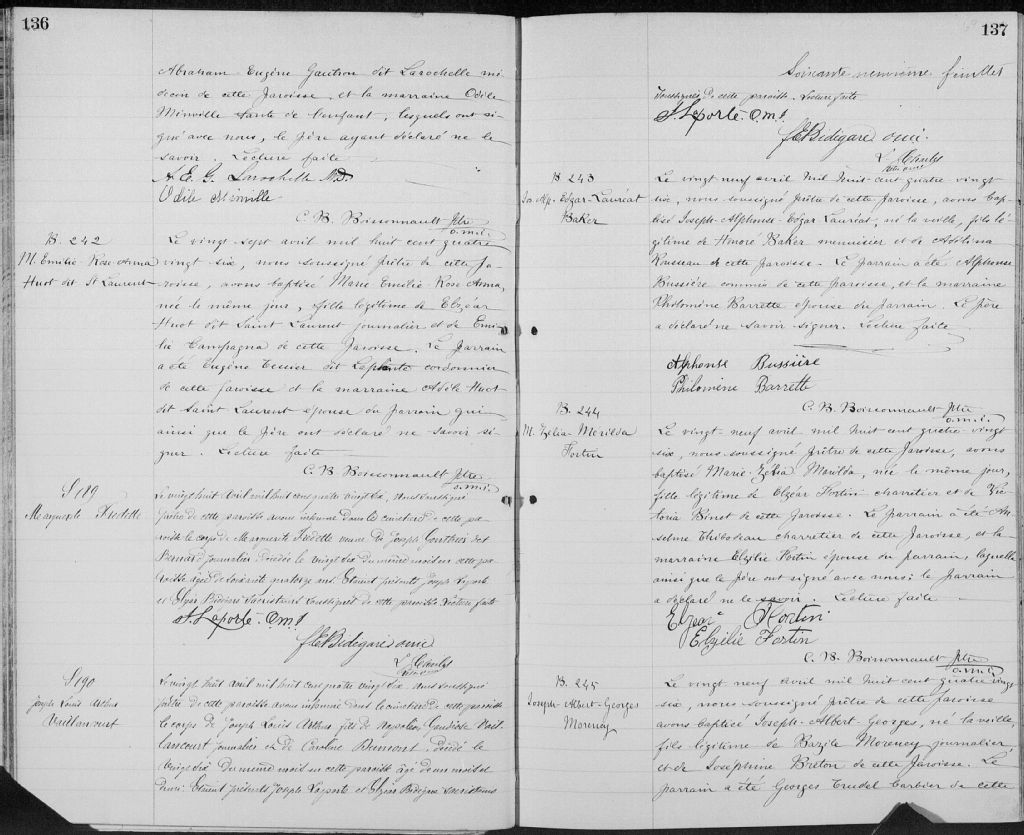 136
Abraham Eugène Gautron dit Larochelle mé-
decin de cette Paroisse et la marraine Odile
Minville tante de l'enfant, lesquels ont si-
gné avec nous, le père ayant déclaré ne le
savoir. Lecture faite
A. E. G. Larochelle M.D.
Odile Minville
C. B. Boissonnault Ptre
o.m.i.
B. 242
M. Emilie-Rose-Anna
Huot dit St Laurent
Le vingt sept avril mil huit cent quatre
vingt six, nous soussigné prêtre de cette Pa-
roisse, avons baptisé Marie Emélie Rose Anna,
née le même jour, fille légitime de Elzéar
Huot dit Saint Laurent journalier et de Emi-
lie Campagna de cette Paroisse. Le parrain
a été Eugène Tessier dit Laplante cordonnier
de cette paroisse et la marraine Adèle Huot
dit Saint Laurent épouse du parrain qui
ainsi que le père ont déclaré ne savoir si-
gner. Lecture faite
C. B. Boissonnault Ptre
o.m.i.
S 189
Marguerite Fredette
Le vingt huit avril mil huit cent quatre vingt six, nous soussigné
prêtre de cette paroisse avons inhumé dans le cimetière de cette pa-
roisse le corps de Marguerite Fredette veuve de Joseph dit
Bernard journalier décédée le vingt six du même mois en cette pa-
roisse âgée de soixante quatorze ans. Etaient présents Joseph Laporte
et Elzéar Bédigaré Sacristains soussignés de cette paroisse. Lecture faite
J. Laporte. O.m.I
E Bédigaré omi
S 190
Joseph Louis Arthur
Vaillancourt
Le vingt huit avril mil huit cent quatre vingt six, nous soussigné
prêtre de cette paroisse avons inhumé dans le cimetière de cette paroisse
le corps de Joseph Louis Arthur fils de Napoléon Vail-
lancourt journalier et de Caroline Dumont, décédé le
vingt six du même mois en cette paroisse âgé de un mois et
demi. Etaient présents Joseph Laporte et Elzéar Bédigaré sacristains
137
Soixante neuvième feuillet
soussignés de cette paroisse. Lecture faite
J. Laporte. O.m.I
E Bédigaré omi
B 243
Jos. Alp. Edgar-Lauréat
Baker
Le vingt neuf avril mil huit cent quatre vingt
six, nous soussigné prêtre de cette paroisse, avons bap-
tisé Joseph-Alphonse-Edgar Lauréat, né la veille, fils lé-
gitime de Honoré Baker menuisier et de
Rousseau de cette paroisse. Le parrain a été Alphonse
Bussière commis de cette paroisse, et la marraine
Philomène Barrette épouse du parrain. Le père
a déclaré ne savoir signer. Lecture faite
Alphonse Bussière
Philomène Barrette
C. B. Boissonnault Ptre
o.m.i.
B. 244
M. Ezélia Merilda
Fortin
Le vingt-neuf avril mil huit cent quatre vingt
six, nous soussigné prêtre de cette Paroisse, avons
baptisé Marie-Ezélia Merilda, née le même jour,
fille légitime de Elzéar Fortin charretier et de Vic-
toria Binet de cette Paroisse. Le parrain a été An-
selme Thibodeau charretier de cette Paroisse, et la
marraine Elzélie Fortin épouse du parrain, laquelle
ainsi que le père ont signé avec nous: le parrain
a déclaré ne le savoir. Lecture faite
Elzear Fortin
Elzélie Fortin
C. B. Boissonnault Ptre
o.m.i.
B. 245
Joseph-Albert-Georges
Morency
Le vingt neuf avril mil huit cent quatre vingt
six, nous soussigné prêtre de cette Paroisse
avons baptisé Joseph-Albert-Georges, né la veille,
fils légitime de Bazile Morency journalier,
et de Josephine Breton de cette paroisse. Le
parrain a été Georges Trudel barbier de cette